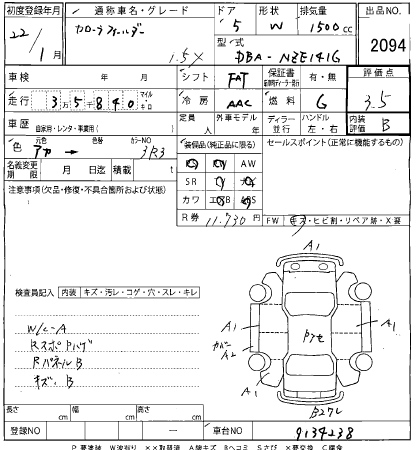 初度登録年月 通称車名・グレード ドア 形状 排気量 出品NO.
22 / 1月 カローラフィールダー 1.5X 5 W 1500cc 2094
型式 DBA-NZE141G
車検 年 月 シフト FAT 保証書 有・無 評価点
走行 35840 マイル キロ 冷房 AAC 燃料 G 3.5
車歴 自家用・レンタ・事業用( ) 定員 人 外車モデル ディラー 並行 ハンドル 左・右 内装評価 B
色 元色 アカ → 色替 カラーNO 3R3 装備品(純正品に限る) セールスポイント(正常に機能するもの)
名義変更期限 月 日迄 積載 t AW
SR
注意事項(欠品・修復・不具合箇所および状態) カワ
R券 11,730円 FW キズ・ヒビ割・リペア跡・X要
検査員記入 内装 キズ・汚レ・コゲ・穴・スレ・キレ
A1
A1
A1
カバー A2
A1
W/C-A
RスポPハゲ
RパネルB
キズ・B
長さ cm 幅 cm 高さ cm
登録NO — 車台NO 9134238
P要塗装 W波打り ××取替済 A駄キズ Bヘコミ Sさび ×要交換 C腐食